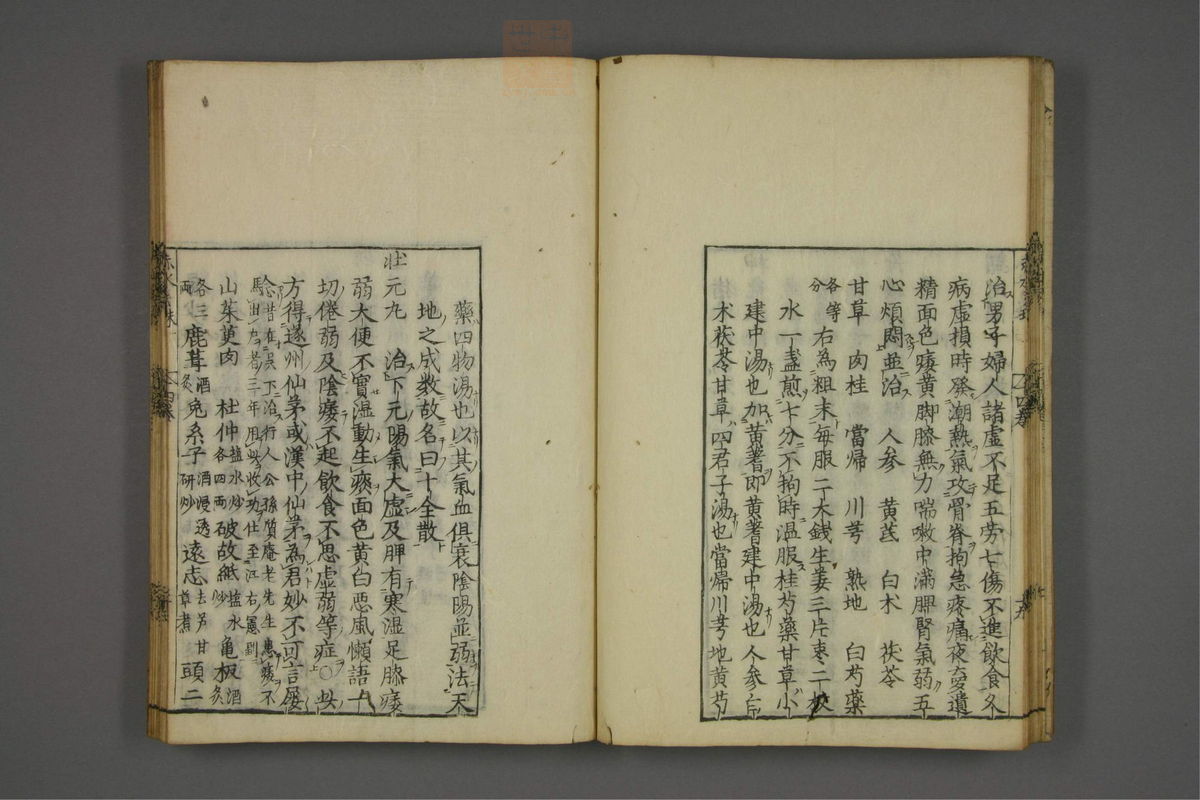 治男子婦人諸虛不足五勞七傷不進飲食久
病虛損時發潮熱氣攻骨脊拘急疼痛夜夢遺
精面色痿黃脚膝無力喘嗽中滿脾腎氣弱五
心煩悶並治 人參 黃芪 白朮 茯苓
甘草 肉桂 當歸 川芎 熟地 白芍藥
各等分 右為粗末每服二大錢生姜三片枣二枚
水一盞煎七分不拘時温服桂芍藥甘草小
建中湯也加黃耆即黃耆建中湯也人參白
术茯苓甘草四君子湯也當歸川芎地黃芍
藥四物湯也以其氣血俱衰陰陽並弱法天
地之成数故名曰十全散
壯元丸 治下元陽氣大虛及脾有寒湿足膝痿
弱大便不實湿動生痰面色黃白惡風懶語一
切倦弱及陰痿不起飲食不思虛弱等症〇
方得遂州仙茅或漢中仙茅為君妙不可言屡
念昔在吴下治行人公孫質庵老先生患痰不
山茱萸肉 杜仲塩水炒各四兩 破故紙塩水炒 亀板酒炙
各三兩 鹿茸酒炙 兔糸子酒浸透研炒 遠志去芦甘草煮 頭二